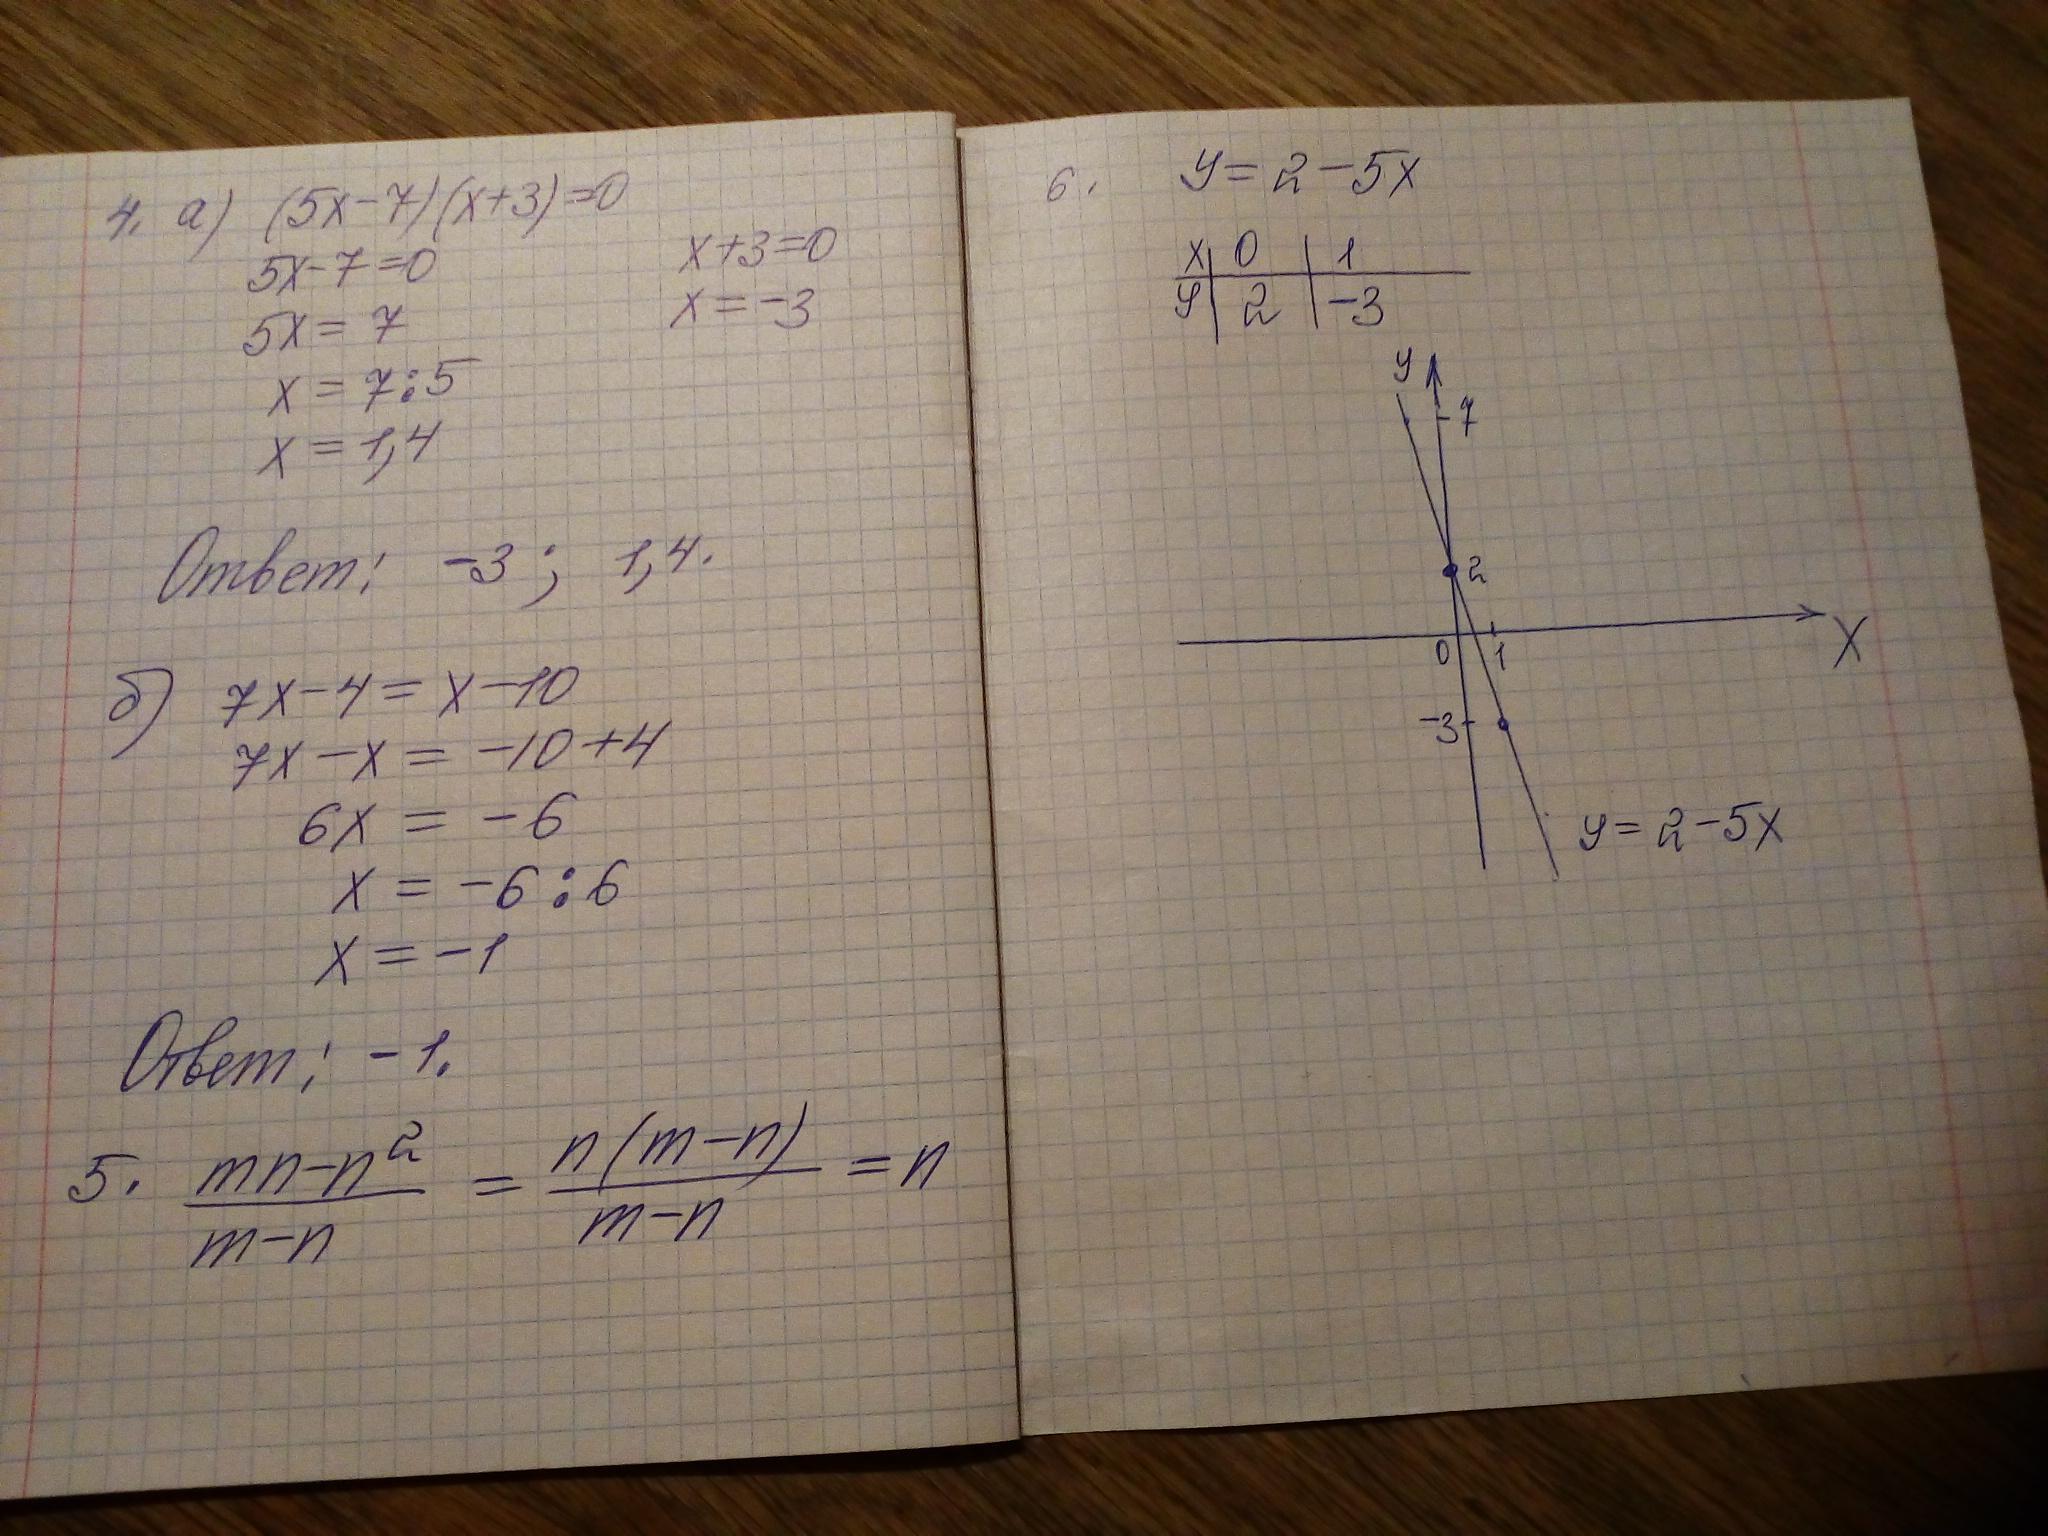 4. а) (5x-7)(x+3)=0
5x-7=0 x+3=0
5x=7 x=-3
x=7:5
x=1,4
Ответ: -3; 1,4.
б) 7x-4=x-10
7x-x=-10+4
6x=-6
x=-6:6
x=-1
Ответ: -1.
5. (mn-n²)/(m-n) = n(m-n)/(m-n) = n
6. y=2-5x
x 0 1
y 2 -3
y
7
2
0 1
X
-3
y=2-5x